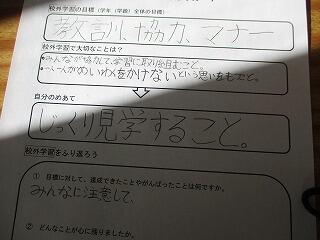 校外学習の目標(学年(学級)全体の目標)
教訓、協力、マナー
校外学習で大切なことは?
・みんなが協力して、学習に取り組むこと。
・一人一人がめいわくをかけないという思いをもつこと。
自分のめあて
じっくり見学すること。
校外学習をふり返ろう
① 目標に対して、達成できたことやがんばったことは何ですか。
みんなに注意して、
② どんなことが心に残りましたか。